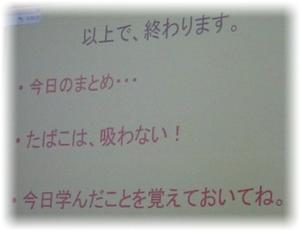 以上で、終わります。
・今日のまとめ・・・
・たばこは、吸わない！
・今日学んだことを覚えておいてね。